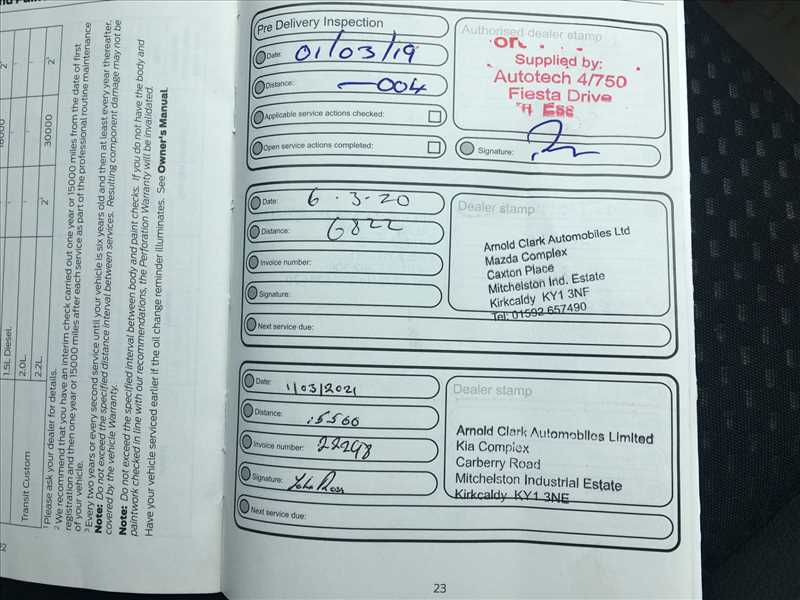 16000
2¹
30000
2¹
1.5L Diesel
2.0L
2.2L
Transit Custom
¹ Please ask your dealer for details.
² We recommend that you have an interim check carried out one year or 15000 miles from the date of first
registration and then one year or 15000 miles after each service as part of the professional routine maintenance
of your vehicle.
³ Every two years or every second service until your vehicle is six years old and then at least every year thereafter.
Note: Do not exceed the specified distance interval between services. Resulting component damage may not be
covered by the vehicle Warranty.
Note: Do not exceed the specified interval between body and paint checks. If you do not have the body and
paintwork checked in line with our recommendations, the Perforation Warranty will be invalidated.
Have your vehicle serviced earlier if the oil change reminder illuminates. See Owner's Manual.
Pre Delivery Inspection
Date: 01/03/19
Distance: 004
Applicable service actions checked:
Open service actions completed:
Authorised dealer stamp
Supplied by:
Autotech 4/750
Fiesta Drive
Signature:
Date: 6.3.20
Distance: 6822
Invoice number:
Signature:
Next service due:
Dealer stamp
Arnold Clark Automobiles Ltd
Mazda Complex
Caxton Place
Mitchelston Ind. Estate
Kirkcaldy KY1 3NF
Tel: 01592 657490
Date: 1/03/2021
Distance: 15560
Invoice number: 22298
Signature: John Ross
Next service due:
Dealer stamp
Arnold Clark Automobiles Limited
Kia Complex
Carberry Road
Mitchelston Industrial Estate
Kirkcaldy KY1 3NE
23